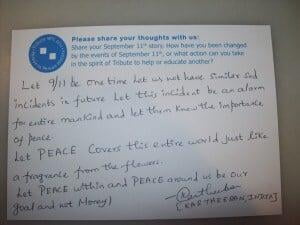 Please share your thoughts with us:
Share your September 11th story. How have you been changed
by the events of September 11th, or what action can you take
in the spirit of Tribute to help or educate another?
Let 9/11 be one time Let us not have similar sad
incidents in future Let this incident be an alarm
for entire mankind and let them know the importance
of peace.
Let PEACE Covers this entire world just like
a fragrance from the flowers.
Let PEACE within and PEACE around us be our
goal and not Money)
Kartheeban
[KARTHEEBAN, INDIA]